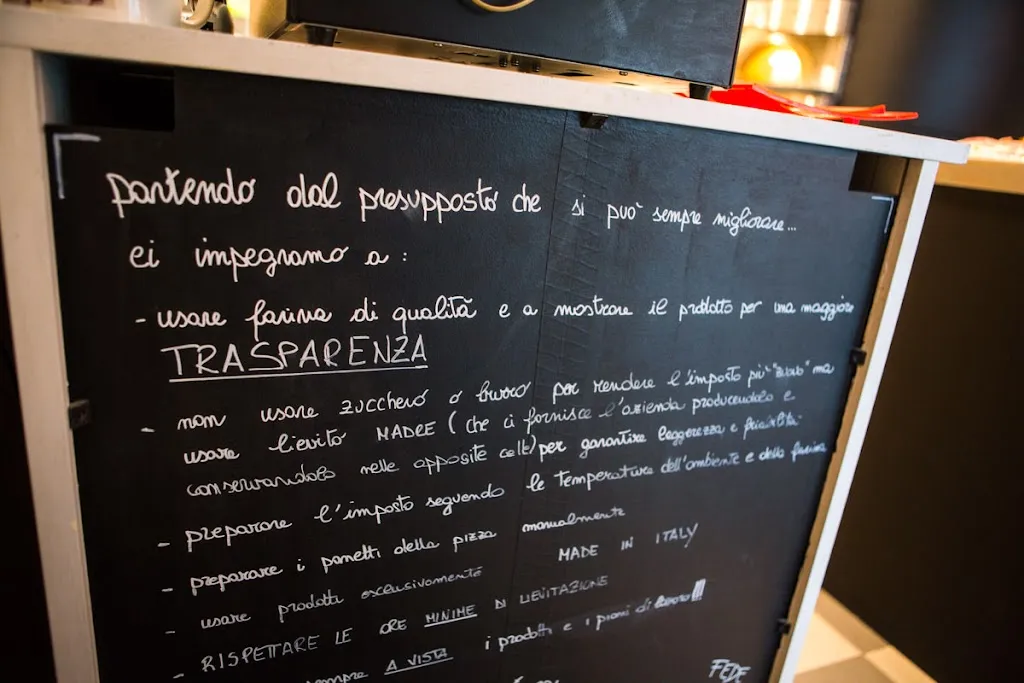 partendo dal presupposto che si può sempre migliorare...
ci impegnamo a :
- usare farina di qualità e a mostrare il prodotto per una maggiore
TRASPARENZA
- non usare zucchero o burro per rendere l'impasto più "buono" ma
usare lievito MADRE (che ci fornisce l'azienda producendolo e
conservandolo nelle apposite celle) per garantire leggerezza e friabilità.
- preparare l'impasto seguendo le temperature dell'ambiente e della farina
- preparare i panetti della pizza manualmente
- usare prodotti esclusivamente MADE IN ITALY
- RISPETTARE LE ORE MINIME DI LIEVITAZIONE
sempre A VISTA i prodotti e i piani di lavoro!!!
FEDE